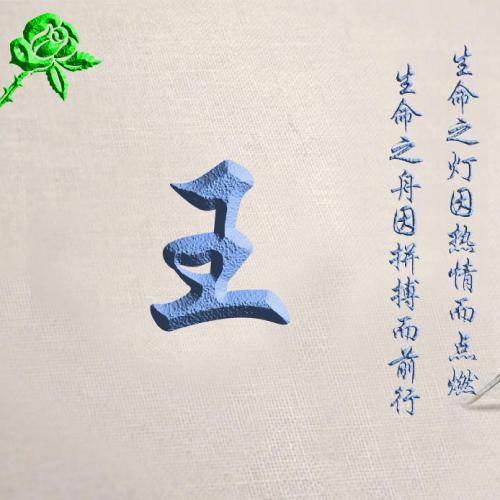 生命之灯因热情而点燃
生命之舟因拼搏而前行
王